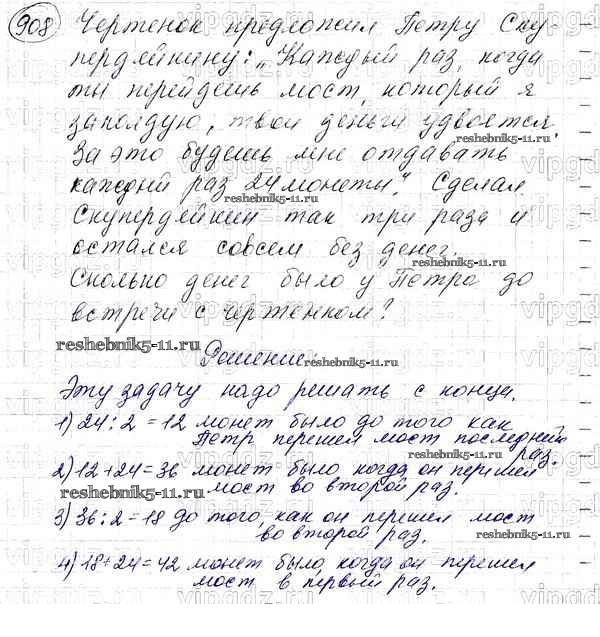 908 Чертенок предложил Петру Ску
пердяйкину: „Каждый раз, когда
ты перейдешь мост, который я
заколдую, твои деньги удвоятся.
reshebnik5-11.ru
За это будешь мне отдавать
каждый раз 24 монеты". Сделал
reshebnik5-11.ru
Скупердяйкин так три раза и
остался совсем без денег.
reshebnik5-11.ru
Сколько денег было у Петра до
встречи с чертенком?
reshebnik5-11.ru
Решение.
reshebnik5-11.ru
Эту задачу надо решать с конца.
1) 24:2=12 монет было до того как
Петр перешел мост последний
раз.
reshebnik5-11.ru
2) 12+24=36 монет было, когда он перешел
мост во второй раз.
reshebnik5-11.ru
3) 36:2=18 до того, как он перешел мост
во второй раз.
reshebnik5-11.ru
4) 18+24=42 монет было, когда он перешел
мост в первый раз.
reshebnik5-11.ru